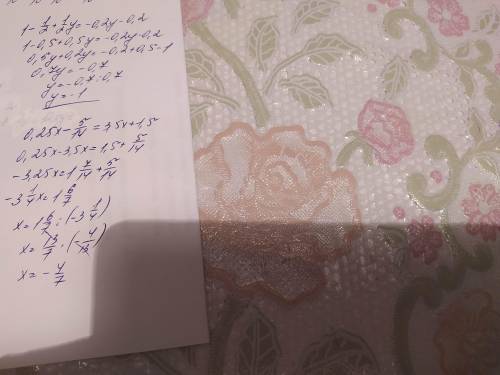 1 - 1/2 + 1/2y = -0,2y - 0,2
1 - 0,5 + 0,5y = -0,2y - 0,2
0,5y + 0,2y = -0,2 + 0,5 - 1
0,7y = -0,7
y = -0,7 : 0,7
y = -1
0,25x - 5/14 = 3,5x + 1,5
0,25x - 3,5x = 1,5 + 5/14
-3,25x = 1 7/14 + 5/14
-3 1/4 x = 1 6/7
x = 1 6/7 : (-3 1/4)
x = 13/7 · (-4/13)
x = - 4/7